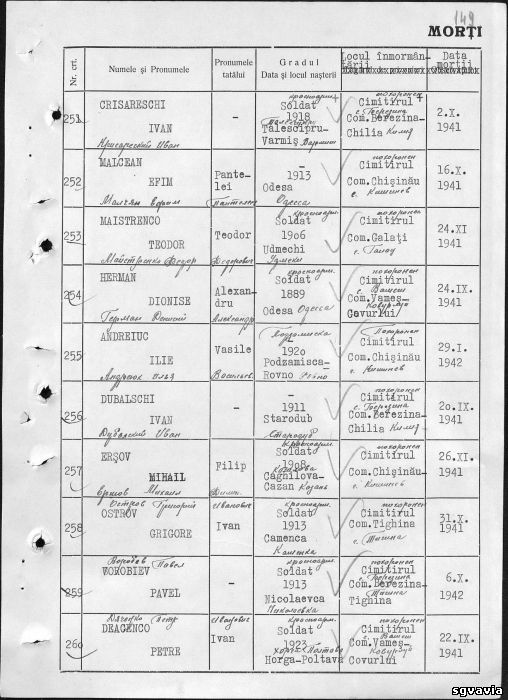 149
MORȚI
Nr. crt.
Numele și Pronumele
Pronumele tatălui
Gradul
Data și locul nașterii
Locul înmormân-
tării
Data
morții
красноарм.
похоронен
251 CRISARESCHI - Soldat Cimitirul 2.X.
1918 с. Березина
IVAN Talescipru- Com.Berezina- 1941
Varmiș Chilia Килия
Крисареский Иван
похоронен
252 MALCEAN Pante- - Cimitirul 16.X.
EFIM lei 1913 Com.Chișinău 1941
Odesa с. Кишинев
Малчан Ефрим Пантелей Одесса
красноарм. похоронен
253 MAISTRENCO Teodor Soldat Cimitirul 24.XI
1906 Com.Galați 1941
TEODOR Udmechi с. Галац
Майстренко Федор Федорович Удмеки
красноарм. похоронен
254 HERMAN Alexan- Soldat Cimitirul 24.IX.
dru 1889 с. Вамеш
DIONISE Odesa Одесса Com.Vameș- 1941
Covurului
Герман Дениский Александр
похоронен
255 ANDREIUC Vasile - Cimitirul 29.I.
1920 Com.Chișinău 1942
ILIE Podzamisca- с. Кишинев
Rovno Ровно
Андреюк Илья
похоронен
256 DUBALSCHI - - Cimitirul 20.IX.
1911 с. Березина
IVAN Starodub Com.Berezina- 1941
Chilia Килия
Дубальский Иван Стародуб
красноарм. похоронен
257 ERȘOV Filip Soldat Cimitirul 26.XI.
1908
MIHAIL Cagnilova- Com.Chișinău- 1941
Cazan Казань с. Кишинев
Ершов Михаил
Остров Григорий Иванович красноарм. похоронен
258 OSTROV Ivan Soldat Cimitirul 31.X.
1913 Com.Tighina 1941
GRIGORE Camenca с. Тигина
Каменка
Воробьев Павел красноарм. похоронен
259 VOROBIEV - Soldat Cimitirul 6.X.
1913 с. Березина
PAVEL Com.Berezina- 1942
Nicolaevca Tighina Тигина
Николаевка
Петр Иванович красноарм. похоронен
260 DEAGENCO Ivan Soldat Cimitirul 22.IX.
1923 с. Вамеш
PETRE Horga-Poltava Com.Vameș- 1941
Covurului
sgvavia